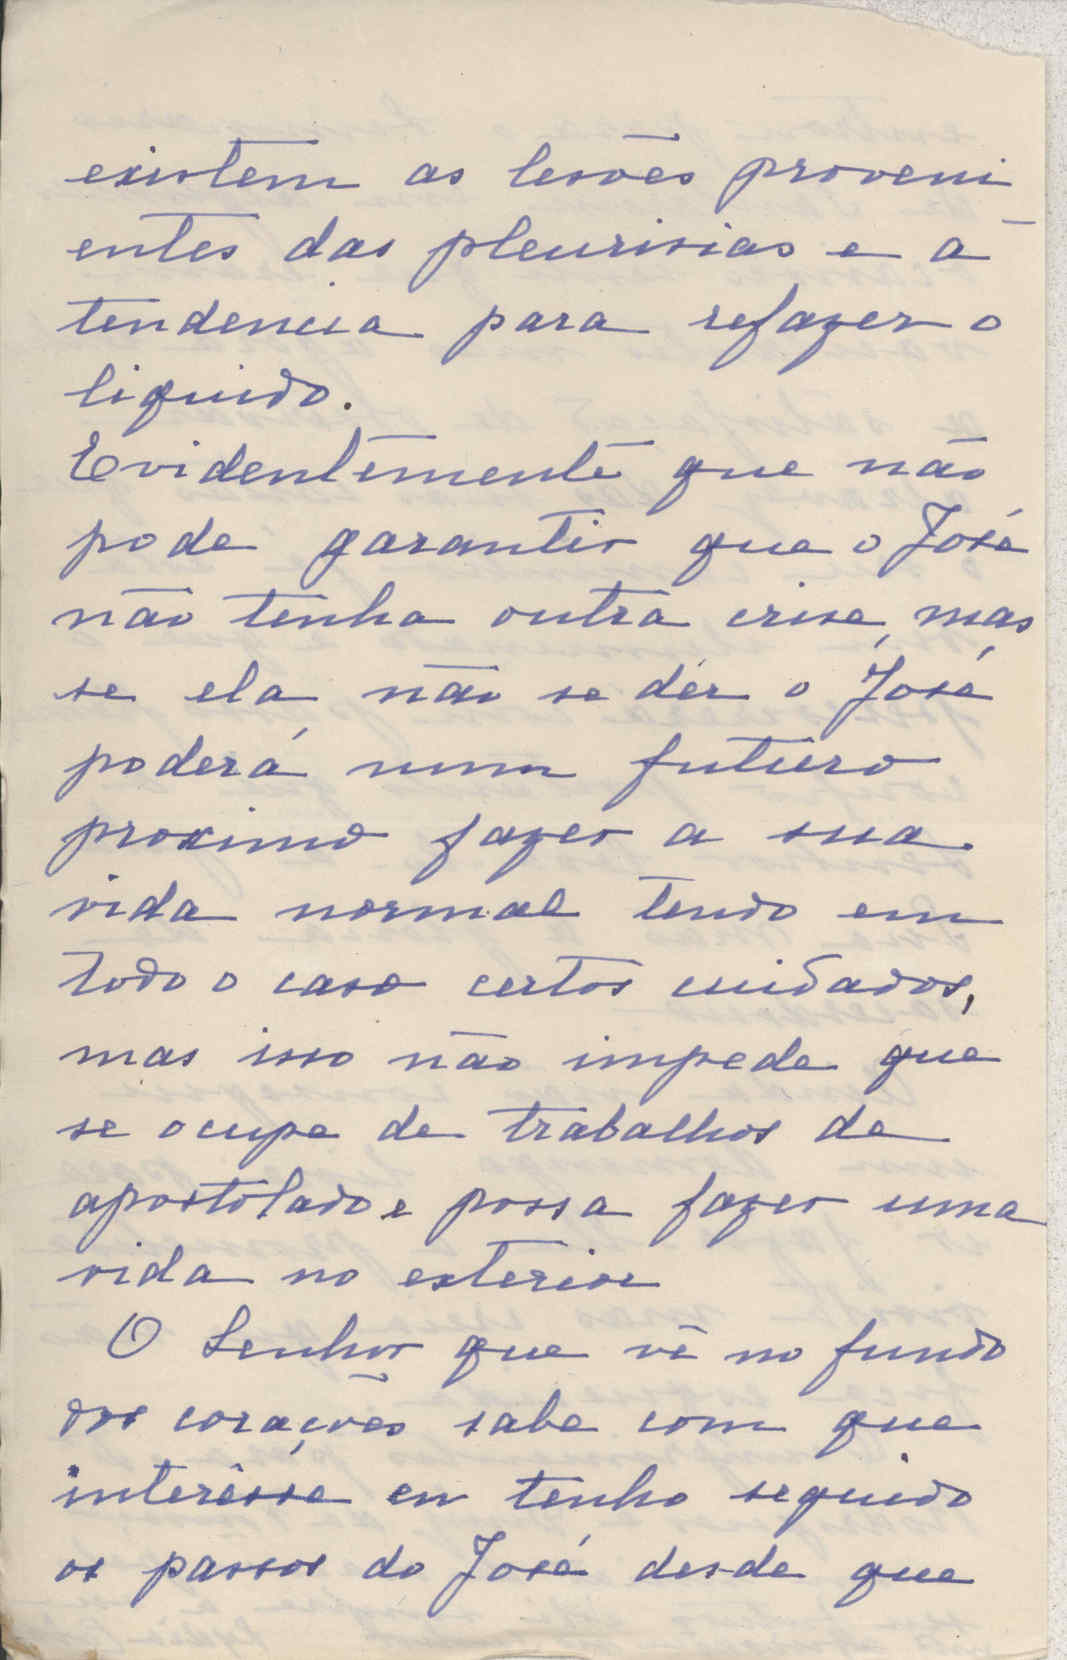 existem as lesões proveni-
entes das pleurisias e a
tendencia para refazer o
liquido.
Evidentemente que não
pode garantir que o José
não tenha outra crise, mas
se ela não se dér o José
poderá num futuro
proximo fazer a sua
vida normal tendo em
todo o caso certos cuidados,
mas isso não impede que
se ocupe de trabalhos de
apostolado e possa fazer uma
vida no exterior
O Senhor que vê no fundo
dos corações sabe com que
interêsse eu tenho seguido
os passos do José desde que